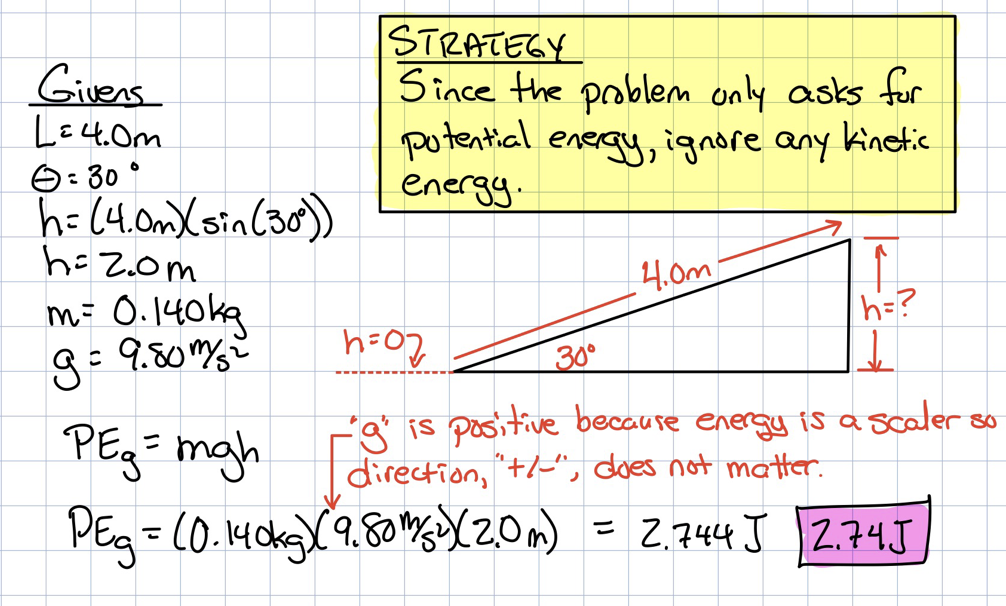 STRATEGY
Since the problem only asks for
potential energy, ignore any kinetic
energy.
Givens
L = 4.0m
θ = 30°
h = (4.0m)(sin(30°))
h = 2.0m
m = 0.140kg
g = 9.80 m/s²
4.0m
h=?
h=0
30°
"g" is positive because energy is a scaler so
direction, "+/-", does not matter.
PEg = mgh
PEg = (0.140kg)(9.80 m/s²)(2.0m) = 2.744 J 2.74J